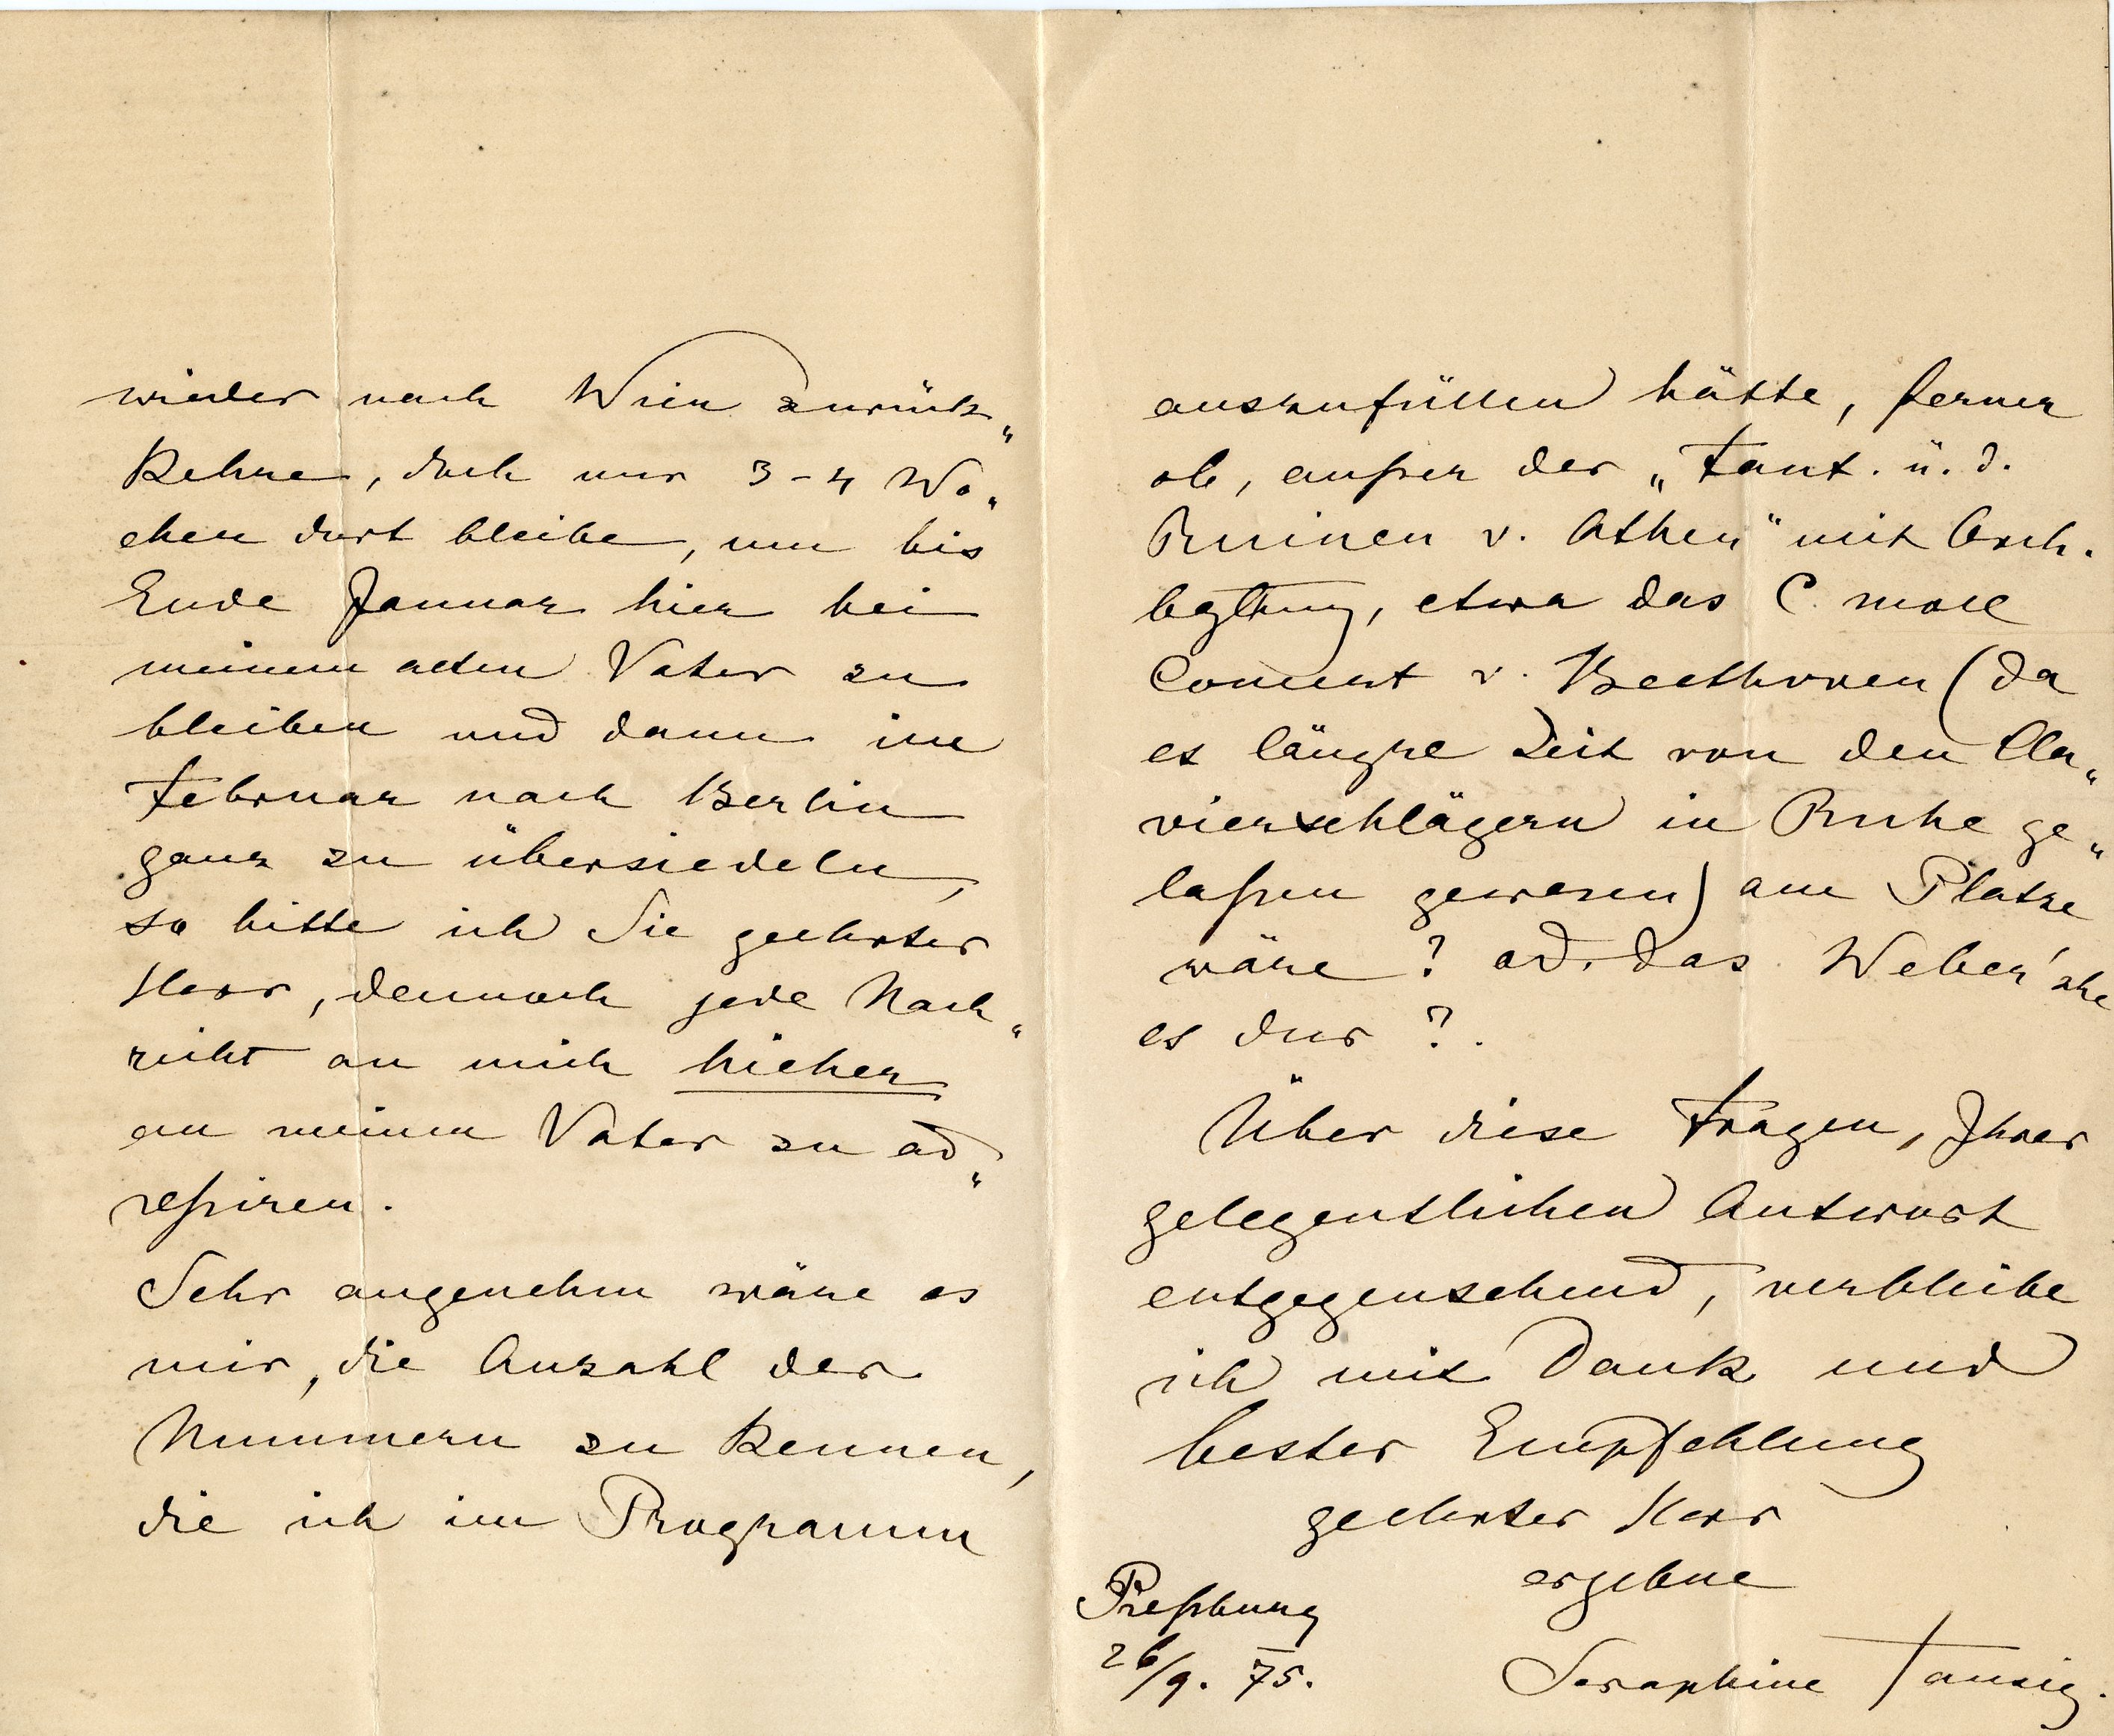 wieder nach Wien zurück„
kehre, doch nur 3-4 Wo„
chen dort bleibe, um bis
Ende Januar hier bei
meinem alten Vater zu
bleiben und dann im
Februar nach Berlin
ganz zu übersiedeln,
so bitte ich Sie geehrter
Herr, dennoch jede Nach„
richt an mich hieher
an meinen Vater zu ad„
reßiren.
Sehr angenehm wäre es
mir, die Anzahl der
Nummern zu kennen,
die ich im Programm
auszufüllen hätte, ferner
ob, außer der „Fant. ü. d.
Ruinen v. Athen" mit Orch.
bgltung, etwa das C. moll
Concert v. Beethoven (da
es längre Zeit von den Cla„
vierschlägern in Ruhe ge„
laßen gewesen) am Platze
wäre? od. das Weber'sche
es dur?.
Über diese Fragen, Ihrer
gelegentlichen Antwort
entgegensehend, verbleibe
ich mit Dank und
bester Empfehlung
geehrter Herr
ergebne
Seraphine Tausig.
Preßburg
26/9. 75.